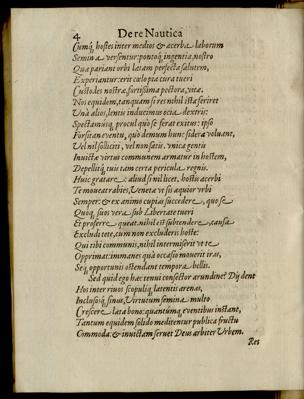 4 De re Nautica
Cumq́, hostes inter medios & acerba laborum
Semina versentur: pontoq́, ingentia, nostro
Quæ pariant orbi latam perfecta salutem,
Experiantur: erit cœlo pia cura tueri
Custodes nostræ, fortissima pectora, vitæ.
Nos equidem, tanquam si res nihil ista feriret
Vnà alios, lentis inducimus ocia dextris:
Spectamusq́, procul quò se ferat exitus: ipso
Forsitan eventu, quò demum hunc sidera voluant,
Vel nil solliciti, vel non satis. vnica gentis
Invictæ virtus communem armatur in hostem,
Depellitq́, tuis tam certa pericula regnis.
Huic gratare: aliud si nil licet. hostis acerbi
Te moueat rabies, Veneta vt sis æquior vrbi
Semper: & ex animo cupias succedere, quo se
Quoq́, suos vera sub Libertate tueri
Et proferre queat. nihil est subtendere, causa
Excludi tete, cum non excluderis hoste:
Qui tibi communis, nihil intermiserit vt te
Opprimat: immanes quà occasio mouerit iras,
Seq́, opportunis ostendant tempora bellis.
Sed quid ego hæc tenui consector arundine? Dij dent
Hos inter riuos scopulosq́, latentis arenas,
Inclusosq́ sinus, Virtutum semina multo
Crescere lata bono: quantumq́ eventibus instant,
Tantum equidem solido meditentur publica fructu
Commoda: & invictam seruet Deus arbiter Vrbem.
Res